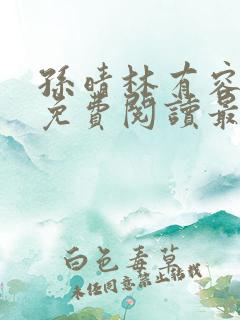 孫晴林有容
免費閱讀最
白色毒草
未經同意禁止轉載